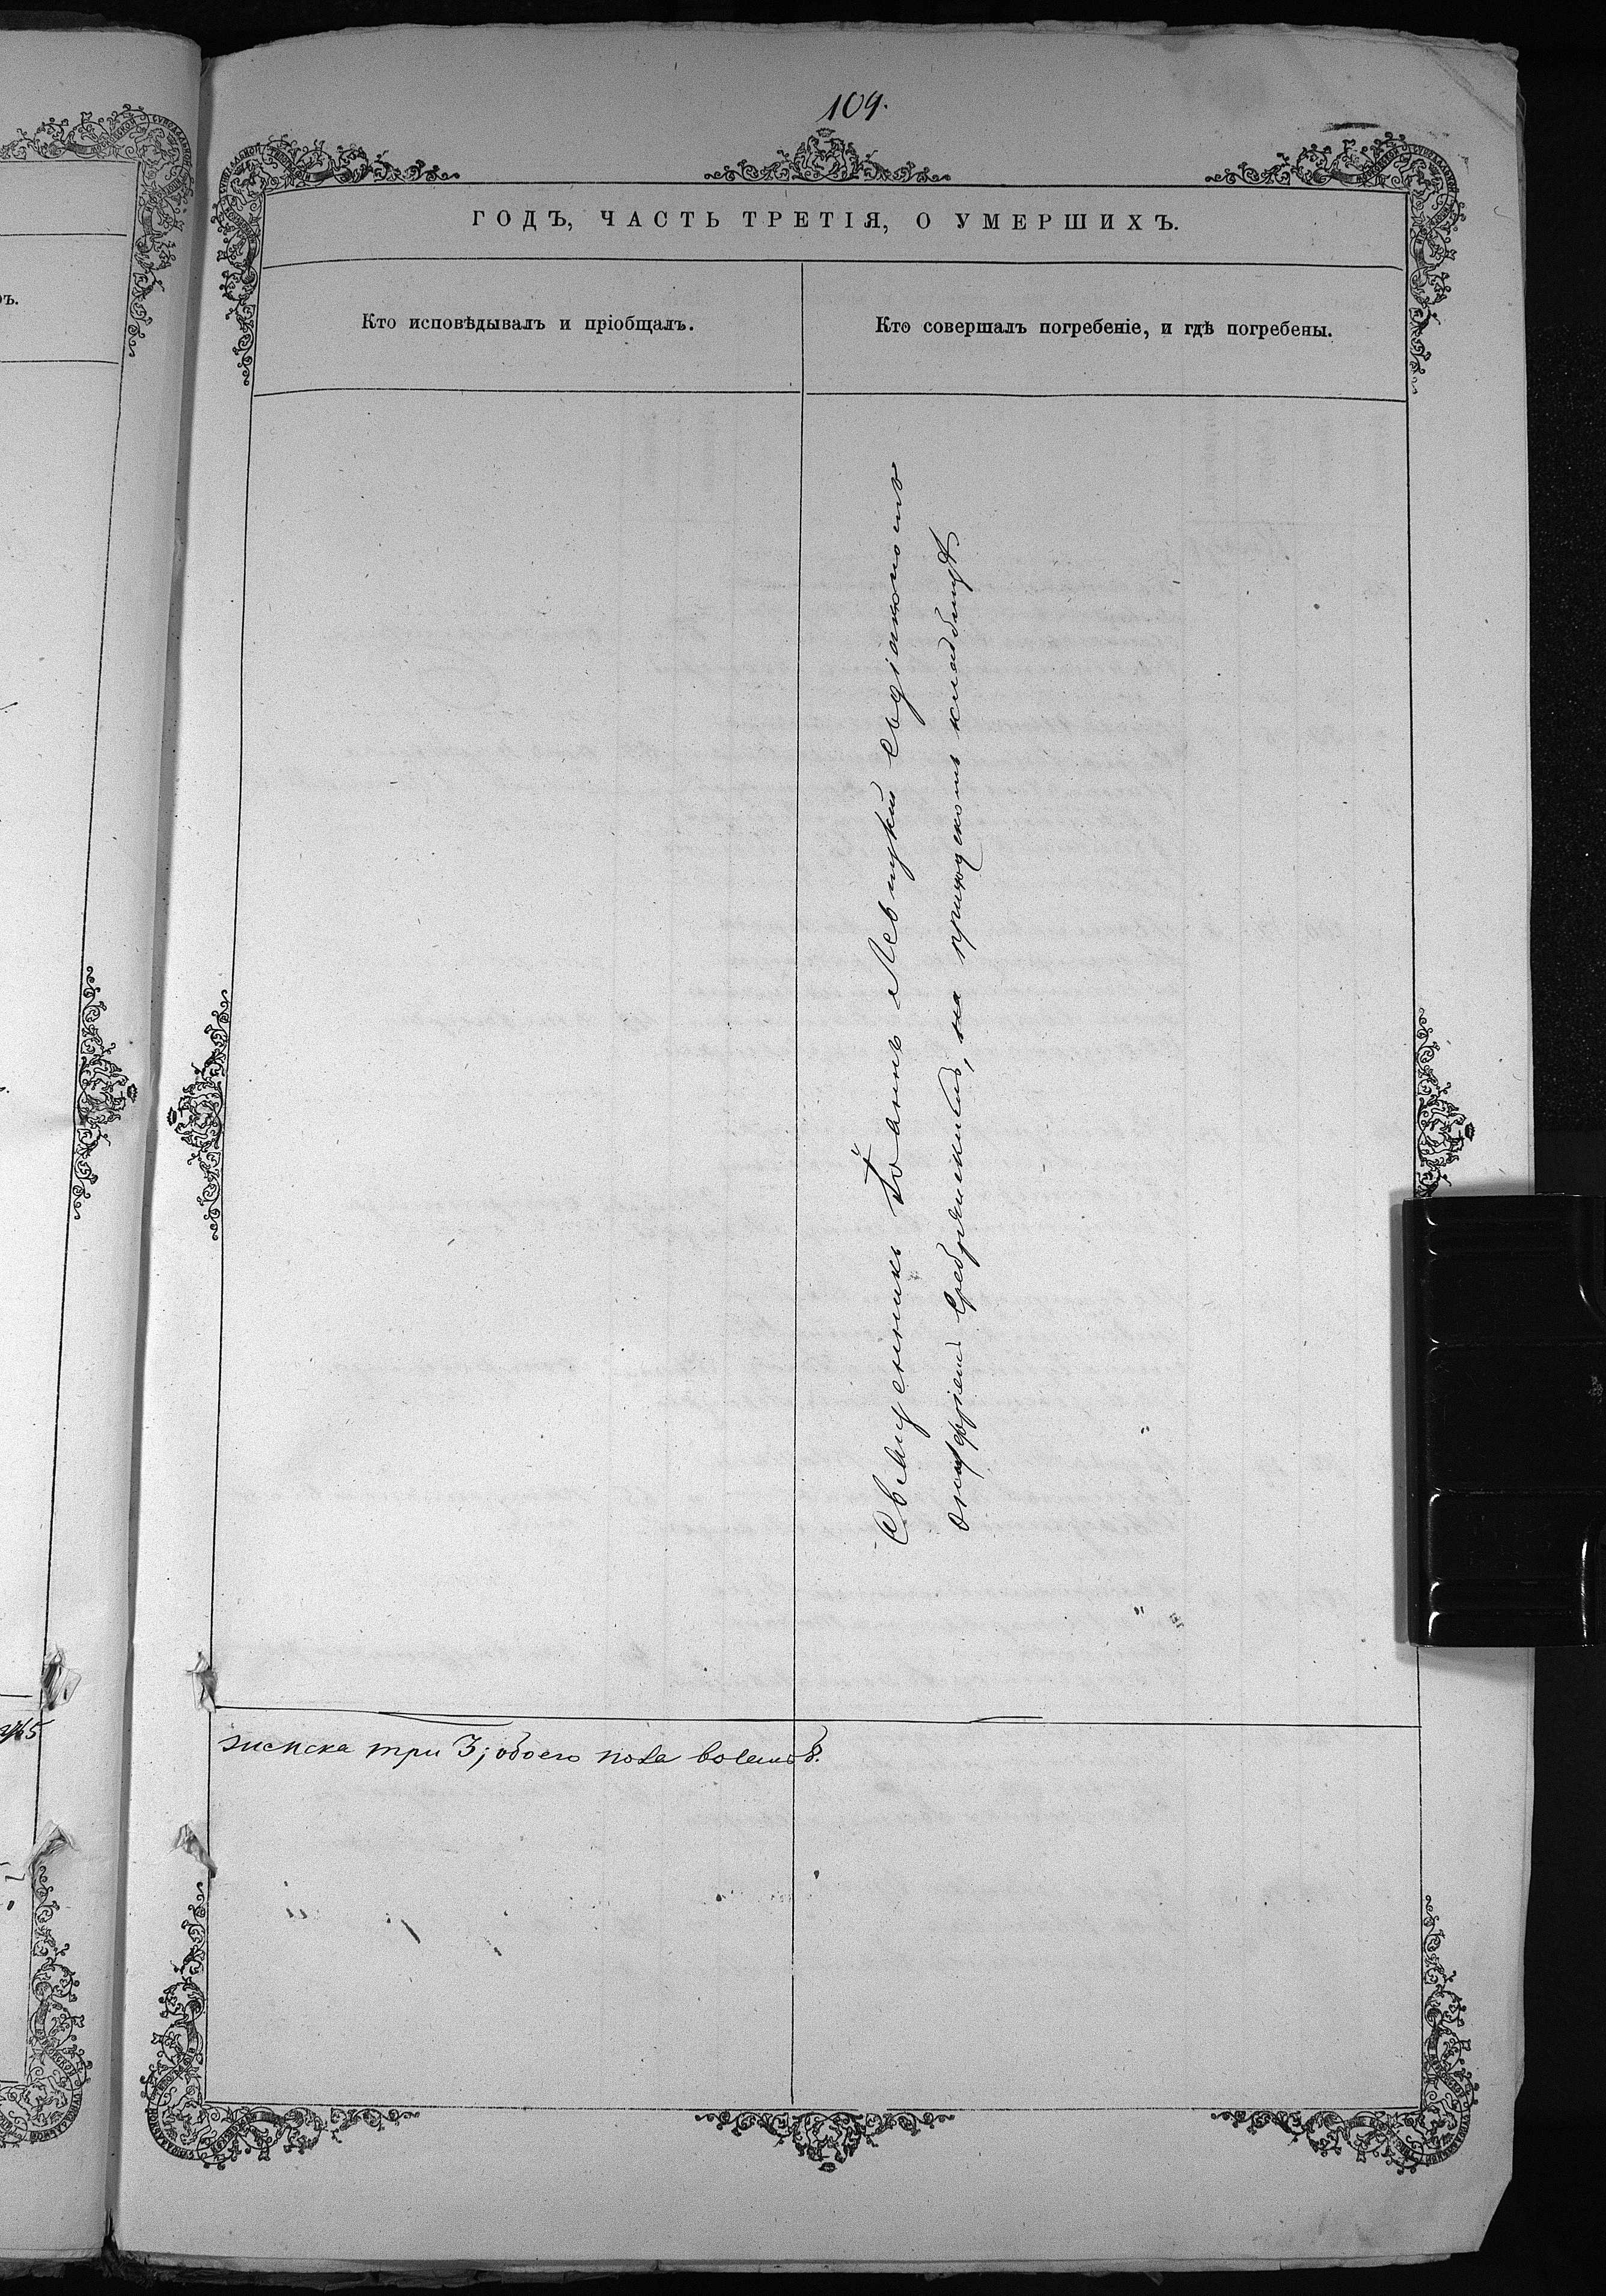 109.
ГОДЪ, ЧАСТЬ ТРЕТІЯ, О УМЕРШИХЪ.
Кто исповѣдывалъ и пріобщалъ.
Кто совершалъ погребеніе, и гдѣ погребены.
Священникъ Іоаннъ Левицкій съ діакономъ
Онуфріем на приходскомъ кладбищѣ
женска три 3; обоего пола восемь 8.